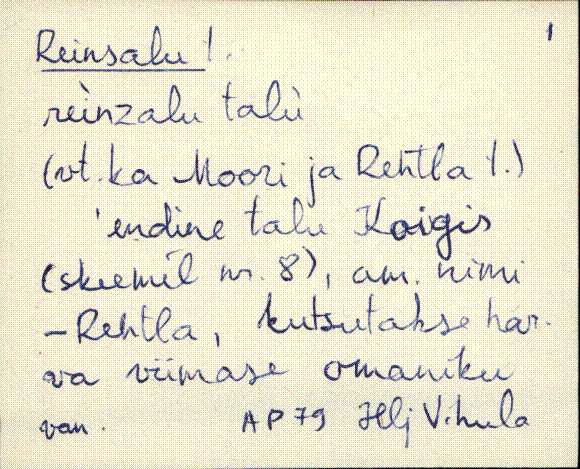 Reinsalu t. 1
reìnzalu talù
(vt. ka Moori ja Rehtla t.)
'endine talu Koigis
(skeemil nr. 8), am. nimi
-Rehtla, kutsutakse har-
va viimase omaniku
van. AP 79 Hlj Vihula